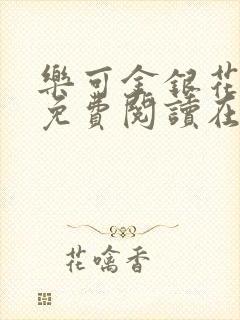 樂可金銀花
免費閱讀在
花噙香